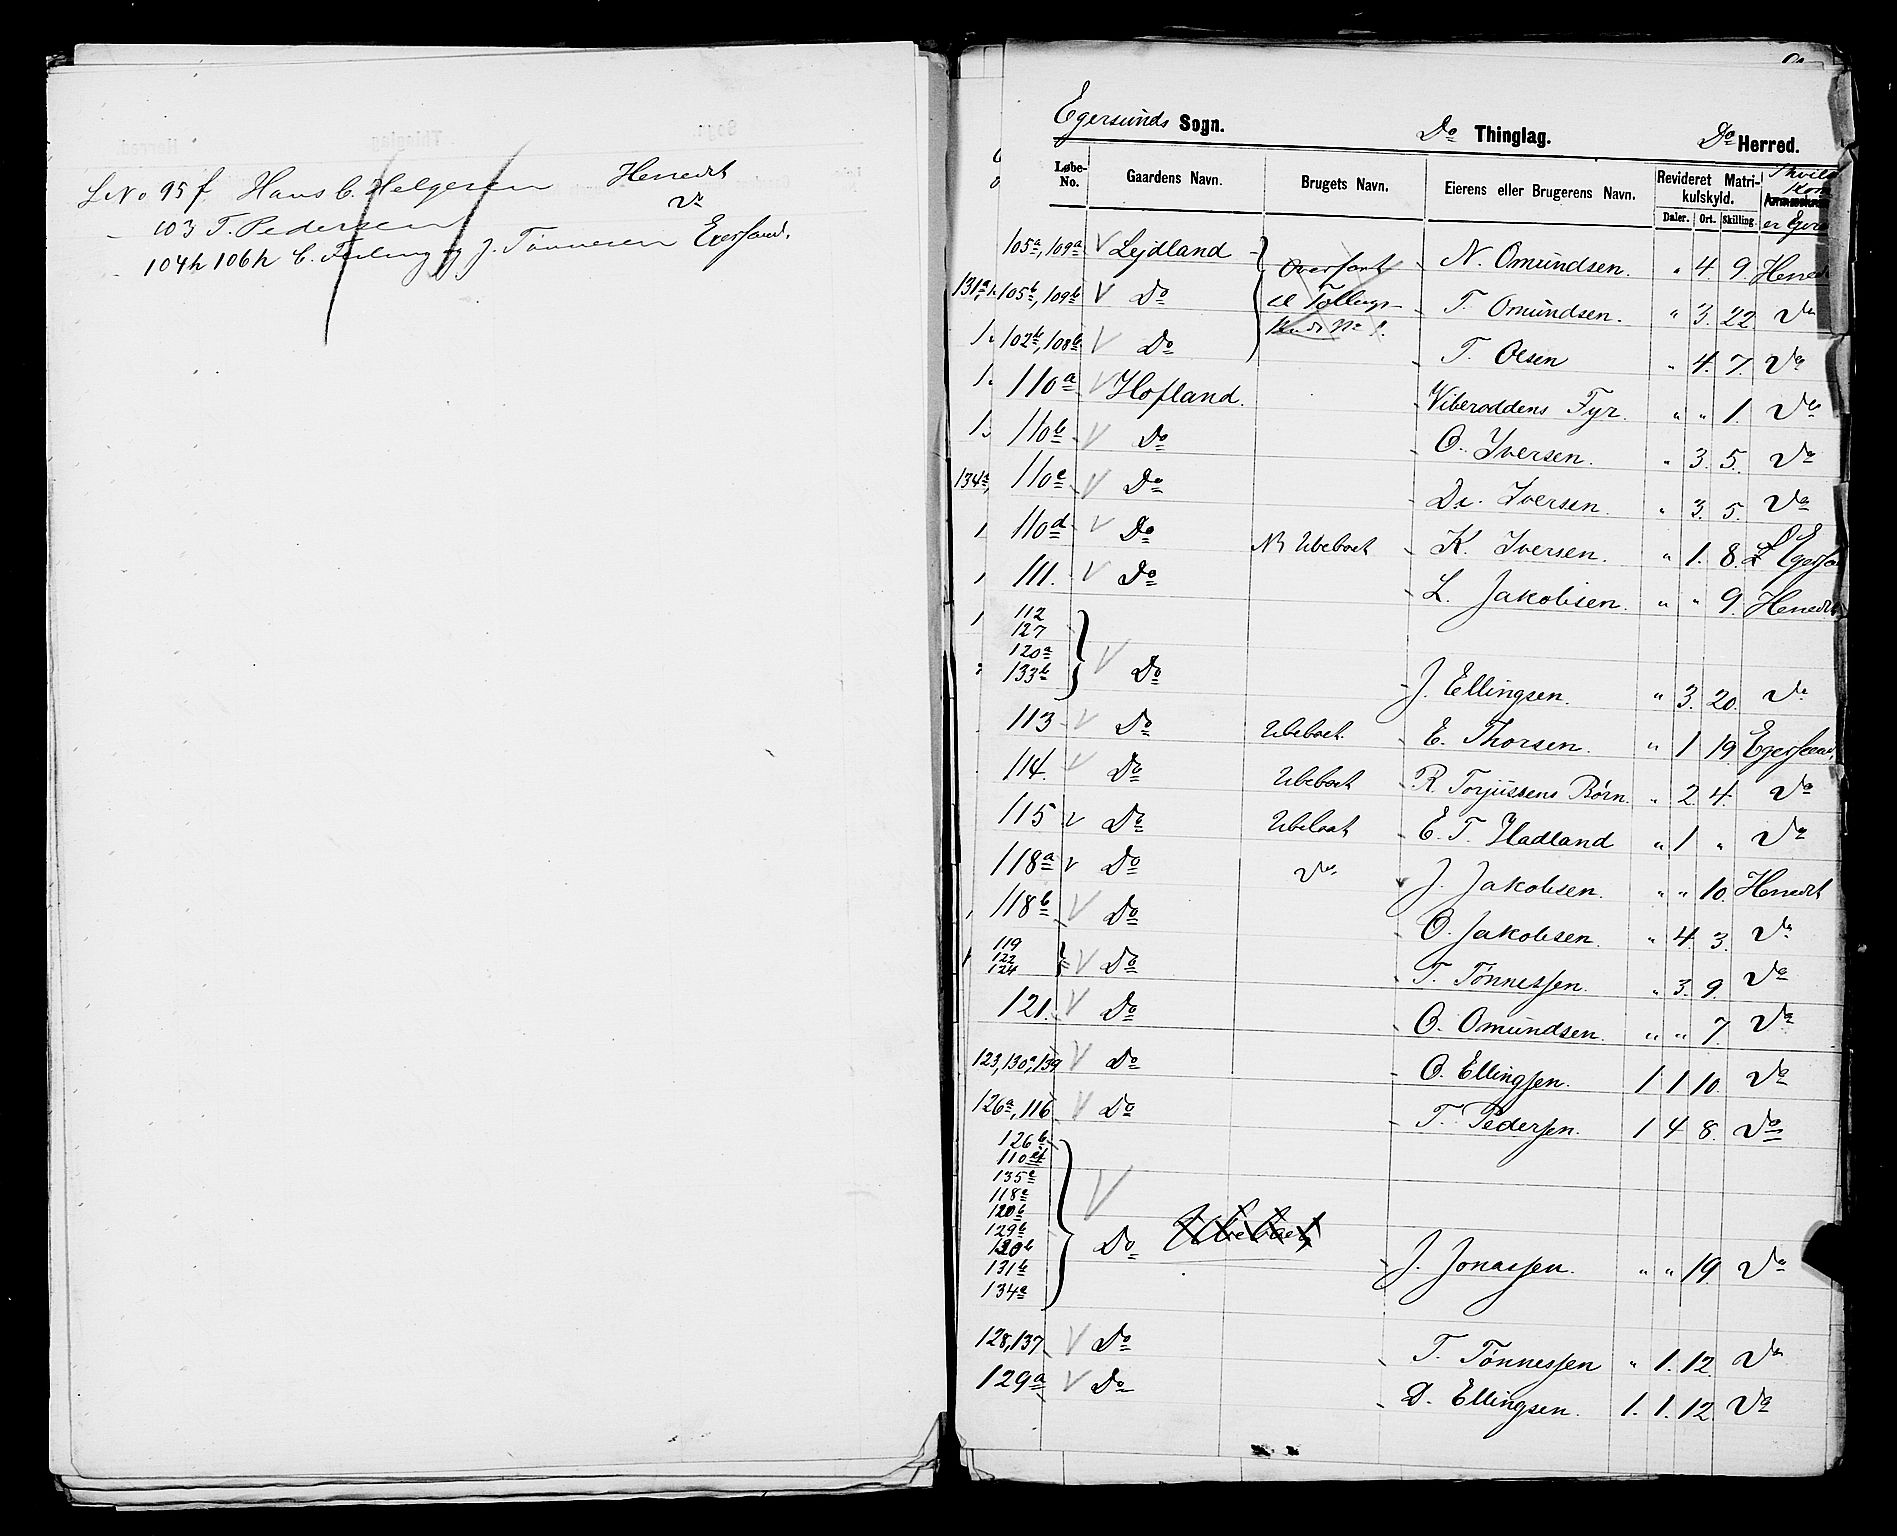 L No 95 f. Hans C. Helgesen Herredt
" 103 T. Pedersen Do
" 104h 106h C. Feiling og J. Tønnesen Egersund.
Egersunds Sogn. Do Thinglag. Do Herred.
Løbe-No. Gaardens Navn. Brugets Navn. Eierens eller Brugerens Navn. Revideret Matrikulskyld. Daler. Ort. Skilling.
105a, 109a V Lejdland N. Omundsen. " 4. 9. Herredt
105b, 109b V Do T. Omundsen. " 3. 22 Do
102b, 108b V Do T. Olsen " 4. 7. Do
110a V Hofland. Viberoddens Fyr. " " 1. Do
110b V Do O. Iversen. " 3. 5. Do
110c V Do Di. Iversen. " 3. 5. Do
110d V Do Ubeboet K. Iversen. " 1. 8. Egersund
111. V Do L. Jakobsen. " " 9. Herredt
112
127
120a
133b V Do J. Ellingsen. " 3. 20. Do
113 V Do Ubeboet. E. Thorsen. " 1 19 Egersund.
114. V Do Ubeboet R. Torjussens Børn. " 2 4. Do
115 V Do Ubeboet E. T. Hadland " 1 " Do
118a V Do Do J. Jakobsen. " " 10. Herredt
118b V Do O. Jakobsen. " 4. 3. Do
119
122
124 V Do T. Tønnessen. " 3. 9. Do
121. V Do O. Omundsen. " " 7. Do
123, 130a, 139 V Do O. Ellingsen. 1 1 10. Do
126a, 116 V Do T. Pedersen. 1 4 8. Do
126b
110
135a
118c
120b
129b
130b
131b
134a V Do Ubeboet J. Jonassen. " " 19 Do
128, 137 V Do T. Tønnessen " 1. 12. Do
129a V Do D. Ellingsen. 1. 1. 12. Do